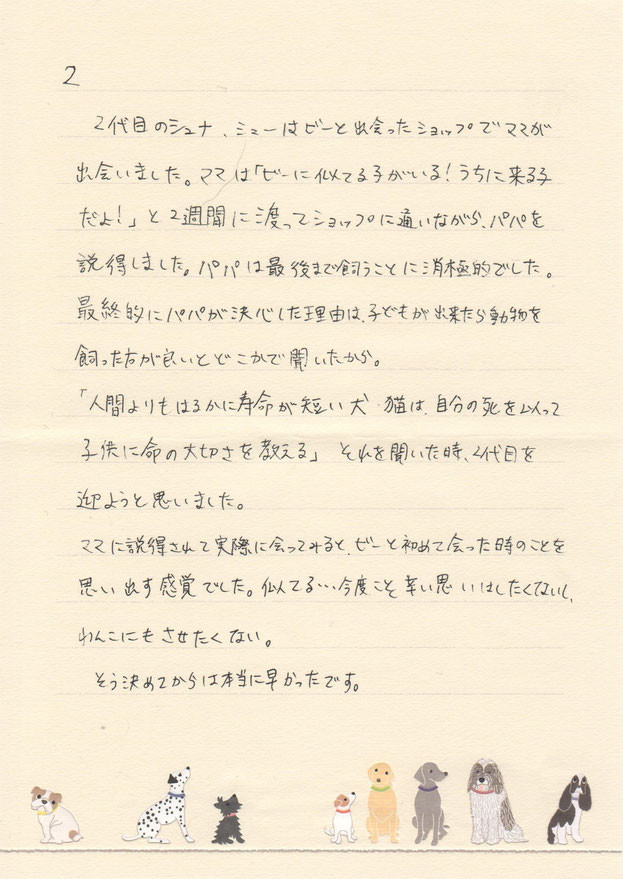 2
2代目のシュナ、ミューはビーと出会ったショップでママが
出会いました。ママは「ビーに似てる子がいる!うちに来る子
だよ!」と2週間に渡ってショップに通いながら、パパを
説得しました。パパは最後まで飼うことに消極的でした。
最終的にパパが決心した理由は、子どもが出来たら動物を
飼った方が良いとどこかで聞いたから。
「人間よりもはるかに寿命が短い犬・猫は、自分の死を以って
子供に命の大切さを教える」それを聞いた時、2代目を
迎ようと思いました。
ママに説得されて実際に会ってみると、ビーと初めて会った時のことを
思い出す感覚でした。似てる…今度こそ辛い思いはしたくないし、
わんこにもさせたくない。
そう決めてからは本当に早かったです。